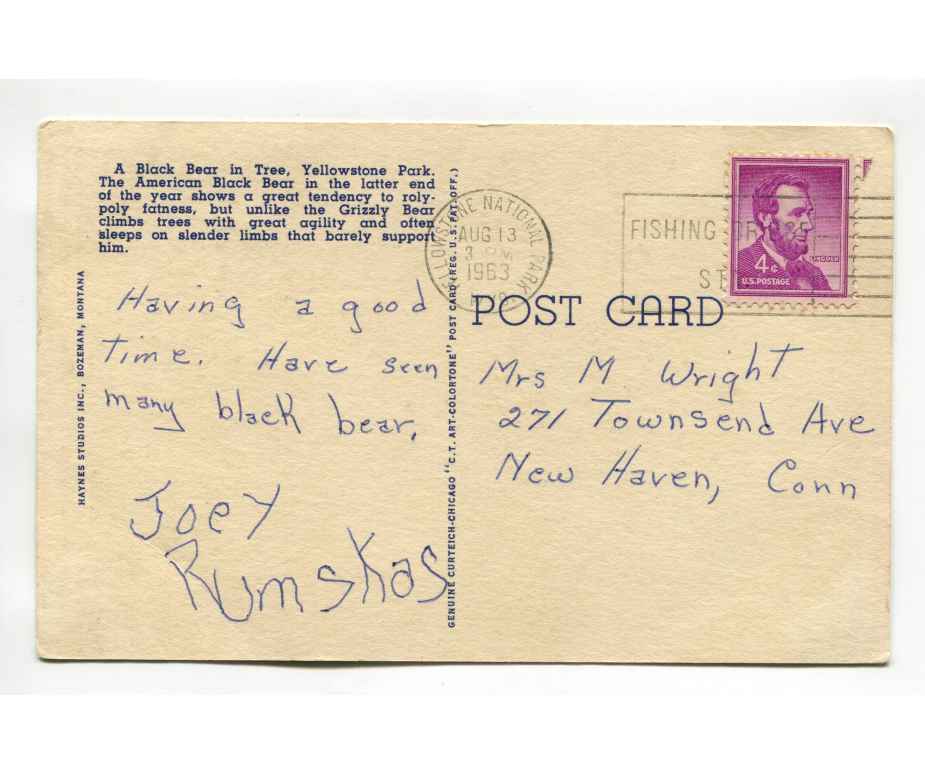 A Black Bear in Tree, Yellowstone Park.
The American Black Bear in the latter end
of the year shows a great tendency to roly-
poly fatness, but unlike the Grizzly Bear
climbs trees with great agility and often
sleeps on slender limbs that barely support
him.
HAYNES STUDIOS INC., BOZEMAN, MONTANA
Having a good
time. Have seen
many black bear.
Joey
Rumskas
GENUINE CURTEICH-CHICAGO "C.T. ART-COLORTONE" POST CARD (REG. U.S. PAT. OFF.)
YELLOWSTONE NATIONAL PARK
AUG 13
3 PM
1963
FISHING
ST
LINCOLN
4¢
U.S. POSTAGE
POST CARD
Mrs M Wright
271 Townsend Ave
New Haven, Conn